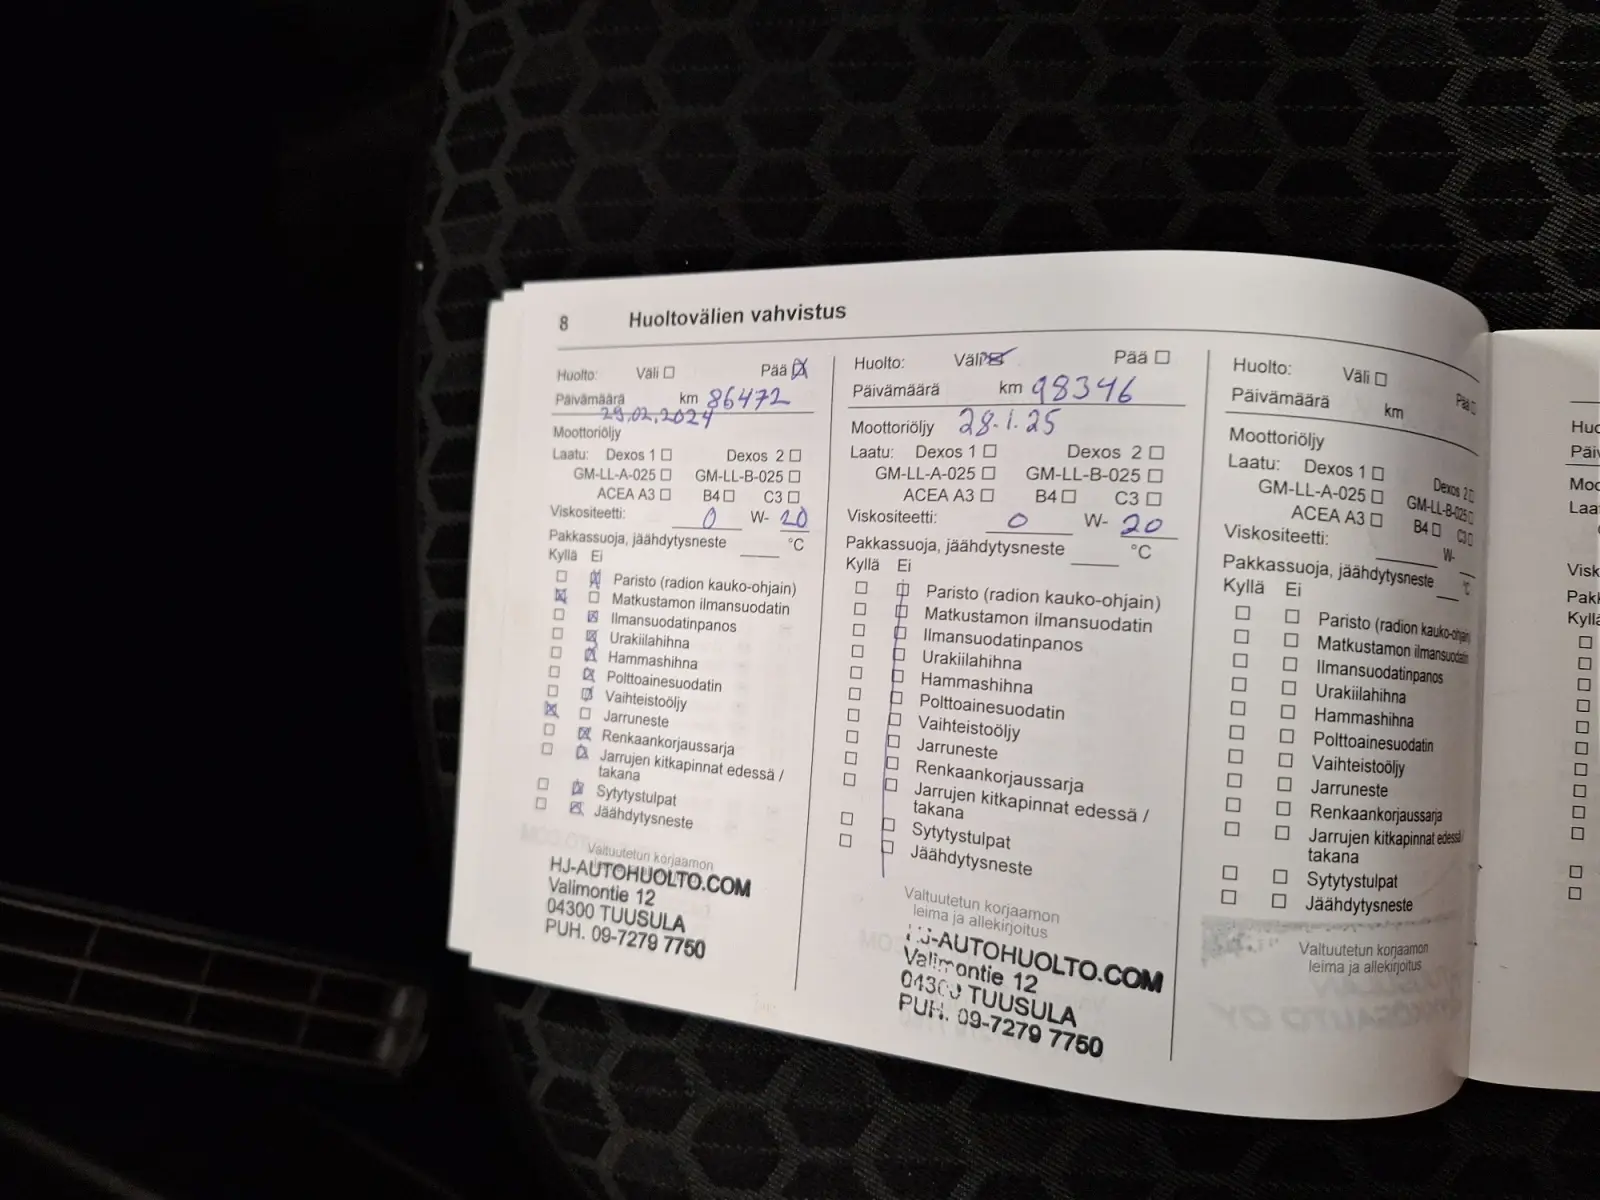 8 Huoltovälien vahvistus
Huolto: Väli ☐ Pää ☒
Päivämäärä km 86472
29.02.2024
Moottoriöljy
Laatu: Dexos 1 ☐ Dexos 2 ☐
GM-LL-A-025 ☐ GM-LL-B-025 ☐
ACEA A3 ☐ B4 ☐ C3 ☐
Viskositeetti: 0 W- 20
Pakkassuoja, jäähdytysneste ____ °C
Kyllä Ei
☐ ☒ Paristo (radion kauko-ohjain)
☒ ☐ Matkustamon ilmansuodatin
☐ ☒ Ilmansuodatinpanos
☐ ☒ Urakiilahihna
☐ ☒ Hammashihna
☐ ☒ Polttoainesuodatin
☐ ☒ Vaihteistoöljy
☒ ☐ Jarruneste
☐ ☒ Renkaankorjaussarja
☐ ☒ Jarrujen kitkapinnat edessä /
takana
☐ ☒ Sytytystulpat
☐ ☒ Jäähdytysneste
Valtuutetun korjaamon
HJ-AUTOHUOLTO.COM
Valimontie 12
04300 TUUSULA
PUH. 09-7279 7750
Huolto: Väli ☒ Pää ☐
Päivämäärä km 98346
28.1.25
Moottoriöljy
Laatu: Dexos 1 ☐ Dexos 2 ☐
GM-LL-A-025 ☐ GM-LL-B-025 ☐
ACEA A3 ☐ B4 ☐ C3 ☐
Viskositeetti: 0 W- 20
Pakkassuoja, jäähdytysneste ____ °C
Kyllä Ei
☐ ☐ Paristo (radion kauko-ohjain)
☐ ☐ Matkustamon ilmansuodatin
☐ ☐ Ilmansuodatinpanos
☐ ☐ Urakiilahihna
☐ ☐ Hammashihna
☐ ☐ Polttoainesuodatin
☐ ☐ Vaihteistoöljy
☐ ☐ Jarruneste
☐ ☐ Renkaankorjaussarja
☐ ☐ Jarrujen kitkapinnat edessä /
takana
☐ ☐ Sytytystulpat
☐ ☐ Jäähdytysneste
Valtuutetun korjaamon
leima ja allekirjoitus
HJ-AUTOHUOLTO.COM
Valimontie 12
04300 TUUSULA
PUH. 09-7279 7750
Huolto: Väli ☐ Pää ☐
Päivämäärä km
Moottoriöljy
Laatu: Dexos 1 ☐ Dexos 2 ☐
GM-LL-A-025 ☐ GM-LL-B-025 ☐
ACEA A3 ☐ B4 ☐ C3 ☐
Viskositeetti: ____ W- __
Pakkassuoja, jäähdytysneste __ °C
Kyllä Ei
☐ ☐ Paristo (radion kauko-ohjain)
☐ ☐ Matkustamon ilmansuodatin
☐ ☐ Ilmansuodatinpanos
☐ ☐ Urakiilahihna
☐ ☐ Hammashihna
☐ ☐ Polttoainesuodatin
☐ ☐ Vaihteistoöljy
☐ ☐ Jarruneste
☐ ☐ Renkaankorjaussarja
☐ ☐ Jarrujen kitkapinnat edessä /
takana
☐ ☐ Sytytystulpat
☐ ☐ Jäähdytysneste
Valtuutetun korjaamon
leima ja allekirjoitus